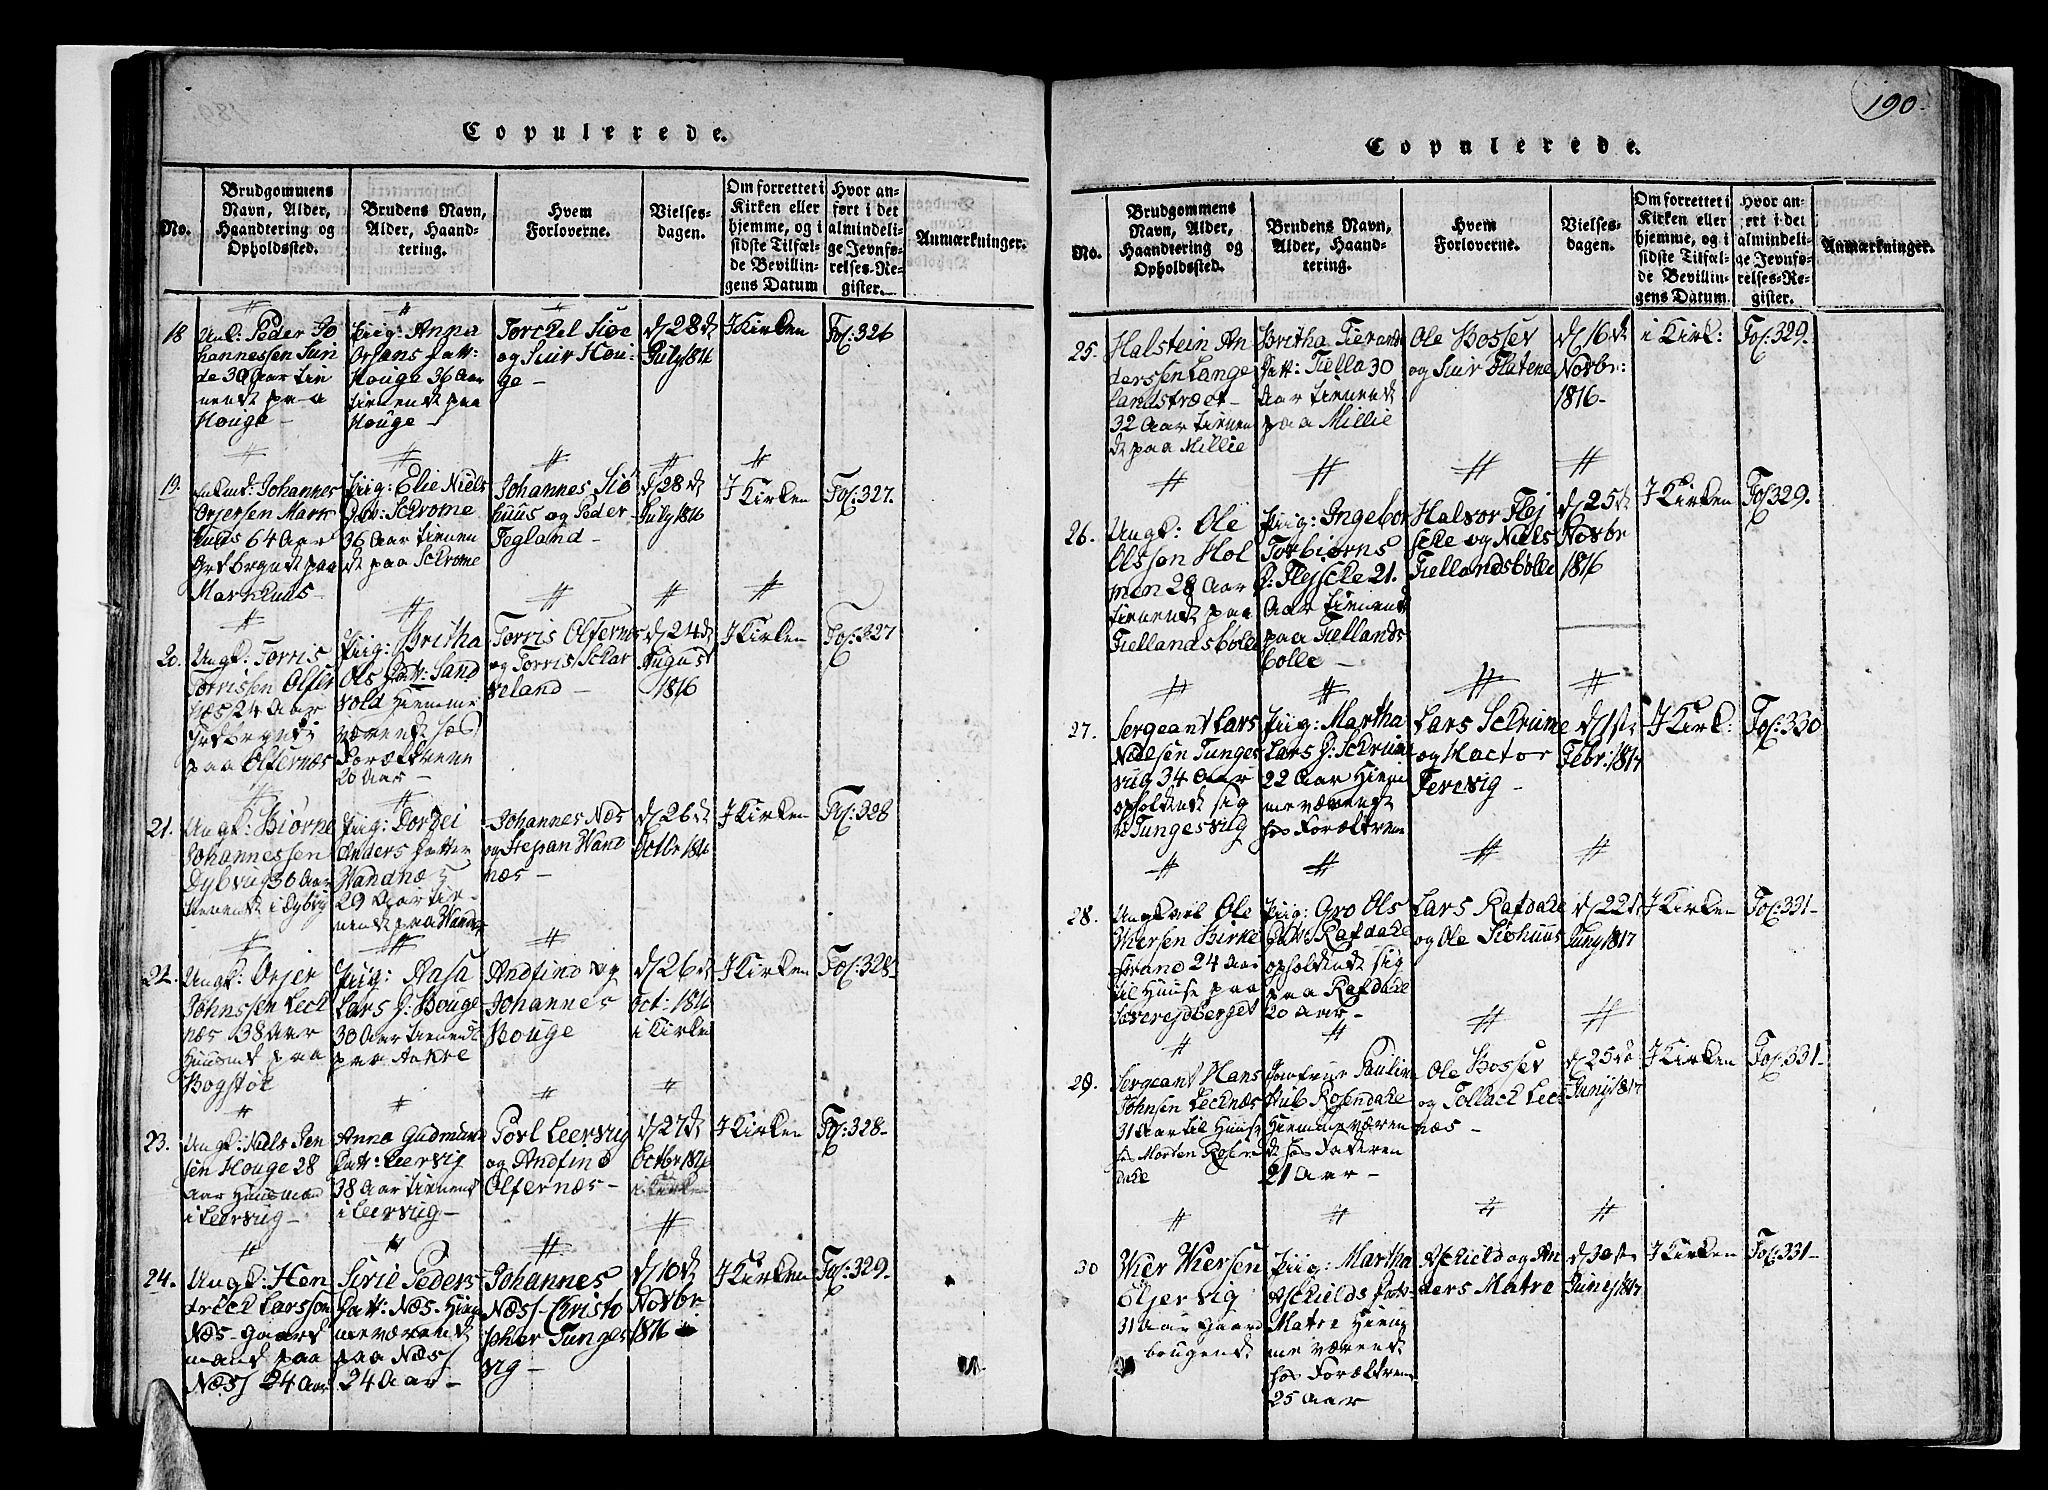 Copulerede.
No.
Brudgommens Navn, Alder, Haandtering og Opholdssted.
Brudens Navn, Alder, Haandtering.
Hvem Forloverne.
Vielsesdagen.
Om forrettet i Kirken eller hjemme, og i sidste Tilfælde Bevillingens Datum
Hvor anført i det almindelige Jevnførelses-Register.
Anmærkninger.
18
Ungk: Peder Jo
hannessen Sun
de 30 Aar tie
nende paa
Houge -
Piig: Anna
Orjans Datt:
Houge 36 Aar
tienende paa
Houge -
Torckel Siøe
og Siur Hou
ge -
d 28 d
July 1816
I Kirken
Fol: 326
19.
Enkmd: Johannes
Orjersen Mark
huus 64 Aar
paa
Markhuus -
Piig: Elie Niels
Schrome
36 Aar tienen
de paa Schrome
Johannes Siö
huus og Peder
Tegland -
d 28 d
July 1816
I Kirken
Fol: 327.
20.
Ungk: Torris
Torrissen Olfer
næs 24 Aar
paa Olfernæs
Piig: Britha
Ols Datt: Sand
vold Hiemme
værende hos
Forældrene
20 Aar -
Torris Olfernæs
og Torris Schar
veland -
d 24 d
August
1816
I Kirken
Fol: 327
21.
Ungk: Biørne
Johannessen
Dybvig 30 Aar
tienende i Dybvig
Piig: Dordei
Anders Datter
Vandnæs
29 Aar tie-
nende paa Wandn
Johannes Næs
og Stephan Wand
næs -
d 26 d
Octbr 1816
I Kirken
Fol: 328
22.
Ungk: Orjer
Johnssen Leck
næs 38 Aar
Huusmd paa
Bogstøe
Piig: Aasa
Lars D: Bouge
30 Aar tienende
paa Aakre
Andfind og
Johannes
Houge
d 26 d
Oct: 1816
i Kirken
I Kirken
Fol: 328-
23.
Ungk: Niels Jen
sen Houge 28
Aar Huusmand
i Leervug -
Anna Gudmund
Datt: Leervig
38 Aar tienende
i Leervug -
Porl Leervug
og Andfind
Olfernæs -
d 27 d
Octbr 1816
i Kirken
I Kirken
Fol: 328-
24.
Ungk: Hen
drick Larssen
Næs - Gaard
mand paa
Næs 24 Aar
Sirie Peders
Datt: Næs - Hiem
meværende
paa Næs
24 Aar -
Johannes
Næs - Christo
pher Tunges
vig -
d 10 d
Novbr
1816
I Kirken
Fol: 329.
190.
Copulerede.
No.
Brudgommens Navn, Alder, Haandtering og Opholdssted.
Brudens Navn, Alder, Haandtering.
Hvem Forloverne.
Vielsesdagen.
Om forrettet i Kirken eller hjemme, og i sidste Tilfælde Bevillingens Datum.
Hvor anført i det almindelige Jevnførelses-Register.
Anmærkninger.
25.
Halstein An
derssen Lange
landstræet -
32 Aar tienen
de paa Millie
Britha
Datt: Tiella 30
Aar tienende
paa Millie
Ole Bossev
og Siur Flatene
d 16 d
Novbr:
1816 -
i Kirk:
Fol: 329.
26.
Ungk: Ole
Olssen Hol
men 28 Aar
tienende paa
Tiellandsbølle
Piig: Ingebor
Torbiørns
D: Flejscke 21.
Aar tienende
paa Tiellands
bolle -
Halvor Flej
scke og Niels
Tiellandsbølle
d 25 d
Novbr
1816
I Kirken
Fol 329.
27.
Sergeant Lars
Nielsen Tunges
vig 34 Aar
opholdende sig
i Tungesvug
Piig: Martha
Lars D: Schrume
22 Aar Hiem
meværende
hos Forældrene
Lars Schrume
og Hactor
Tervsig -
d 1ste
Febr: 1817
I Kirk:
Fol: 330
28.
Ungkarl Ole
Wiersen Birke
strand 24 Aar
til Huuse paa
Piig: Gro Ols
Datt: Rafdahe
opholdende sig
paa Rafdahe
20 Aar -
Lars Rafdahe
og Ole Siohuus
d 22 d
Juny 1817
I Kirken
Fol: 331-
29.
Sergeant Hans
Johnsen Lecknæs
31 Aar til Huuse
hos Morten Rosen
dahe
Jomfrue Paulin
Rosendahe
Hiemmeværen
de hos Faderen
21 Aar -
Ole Bossev
og Tollack Leck
næs -
d 25 de
Juny 1817
I Kirken
Fol: 331-
30
Wier Wiersen
Eljervig
31 Aar Gaard
brugende
Piig: Martha
Aschields Datt
Matre Hiem
meværende
hos Forældrene
25 Aar
Aschield og An
ders Matre
d 30 te
Juny 1817
I Kirken
Fol: 331-